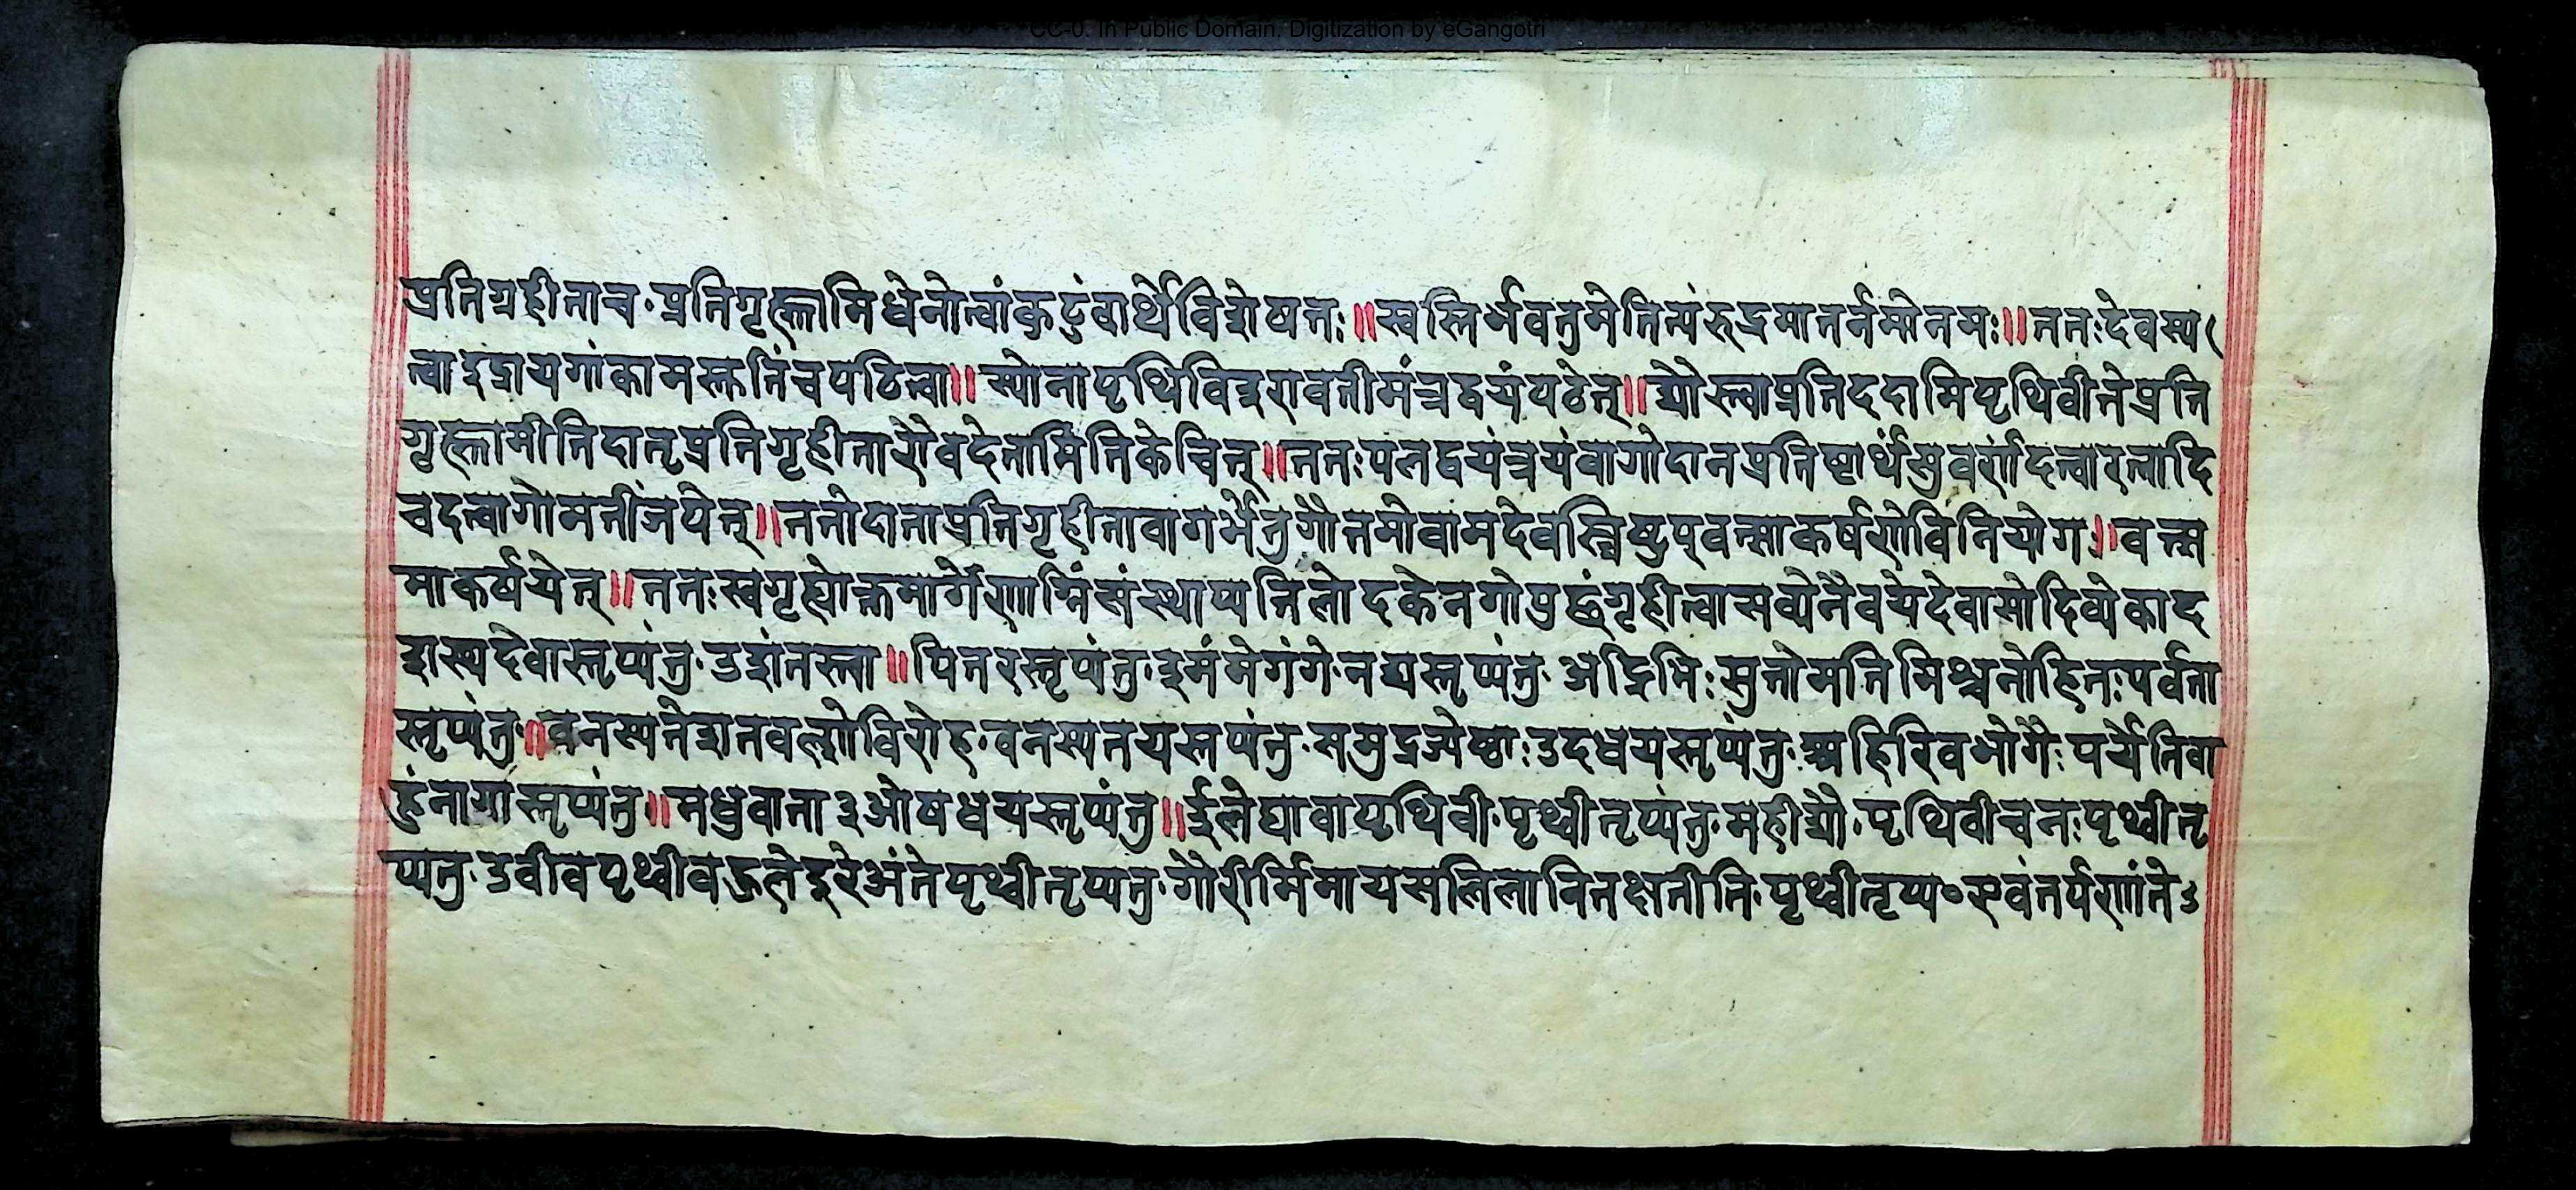 CC-0. In Public Domain. Digitization by eGangotri
प्रतिग्रहीताच॰प्रतिगृह्णामिधेनोत्वांकुटुंबार्थेविशेषतः॥स्वस्तिर्भवतुमेनित्यंरुद्रमातर्नमोनमः॥ततःदेवस्य
त्वाइंद्रायगांकामस्तुतिंचपठित्वा॥स्योनापृथिविइरावतीमंत्रद्वयंपठेत्॥द्यौस्त्वाप्रतिददामिपृथिवीतेप्रति
गृह्णामीतिदातृप्रतिगृहीतारौवदेतामितिकेचित्॥ततःपलद्वयंत्रयंवागोदानप्रतिष्टार्थंसुवर्णंदत्वारत्नादि
चदत्वागोमतींजपेत्॥ततोदाताप्रतिगृहीतावागर्भेनुगौतमोवामदेवस्त्रिष्टुप्वत्साकर्षणेविनियोग॥वत्स
माकर्षयेत्॥ततःस्वगृह्योक्तमार्गेणाग्निंसंस्थाप्यतिलोदकेनगोपुछंगृहीत्वासव्येनैवयेदेवासोदिव्येकाद
शस्यदेवास्तृप्यंतु॰उशंतस्त्वा॥पितरस्तृप्यंतु॰इमंमेगंगे॰नद्यस्तृप्यंतु॰अद्रिभिःसुतोमतिभिश्चनोहितःपर्वता
स्तृप्यंतु॥वनस्पतेशतवल्शोविरोह॰वनस्पतयस्तृप्यंतु॰समुद्रज्येष्ठाःउदधयस्तृप्यंतु॰अहिरिवभोगैःपर्येतिबा
हुंनागास्तृप्यंतु॥मधुवाता३ओषधयस्तृप्यंतु॥ईलेद्यावापृथिवी॰पृथ्वीतृप्यंतु॰महीद्यौ॰पृथिवीचनःपृथ्वीतृ
प्यतु॰उर्वीवपृथ्वीबहुलेदूरेअंतेपृथ्वीतृप्यतु॰गौरीर्मिमायसलिलानितक्षतीति॰पृथ्वीतृप्य॰एवंतर्पणांते३